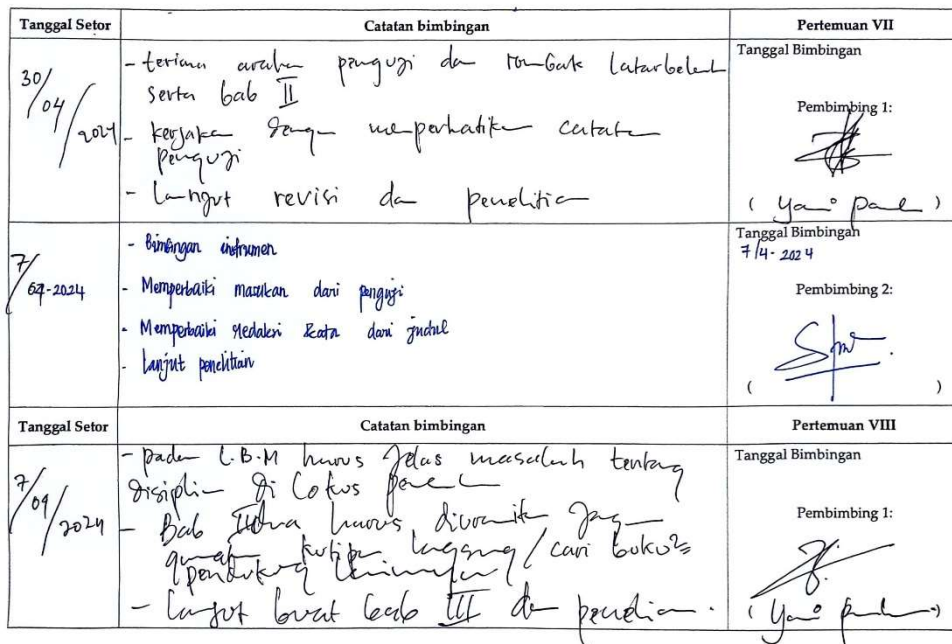 Tanggal Setor Catatan bimbingan Pertemuan VII
30/04/2024
- terima arahan penguji dan rombak latarbelakang
serta bab II
- kerjakan dengan memperhatikan catatan
penguji
- Lanjut revisi dan penelitian
Tanggal Bimbingan
Pembimbing 1:
7/ -2024
- Bimbingan instrumen
- Memperbaiki masukan dari penguji
- Memperbaiki redaksi kata dari judul
- Lanjut penelitian
Tanggal Bimbingan
7/4-2024
Pembimbing 2:
( )
Tanggal Setor Catatan bimbingan Pertemuan VIII
7/09/2024
- pada L.B.M harus jelas masalah tentang
disiplin di lokus
- Bab harus
kutipan / cari buku²
pendukung
- lanjut buat bab III dan
Tanggal Bimbingan
Pembimbing 1: